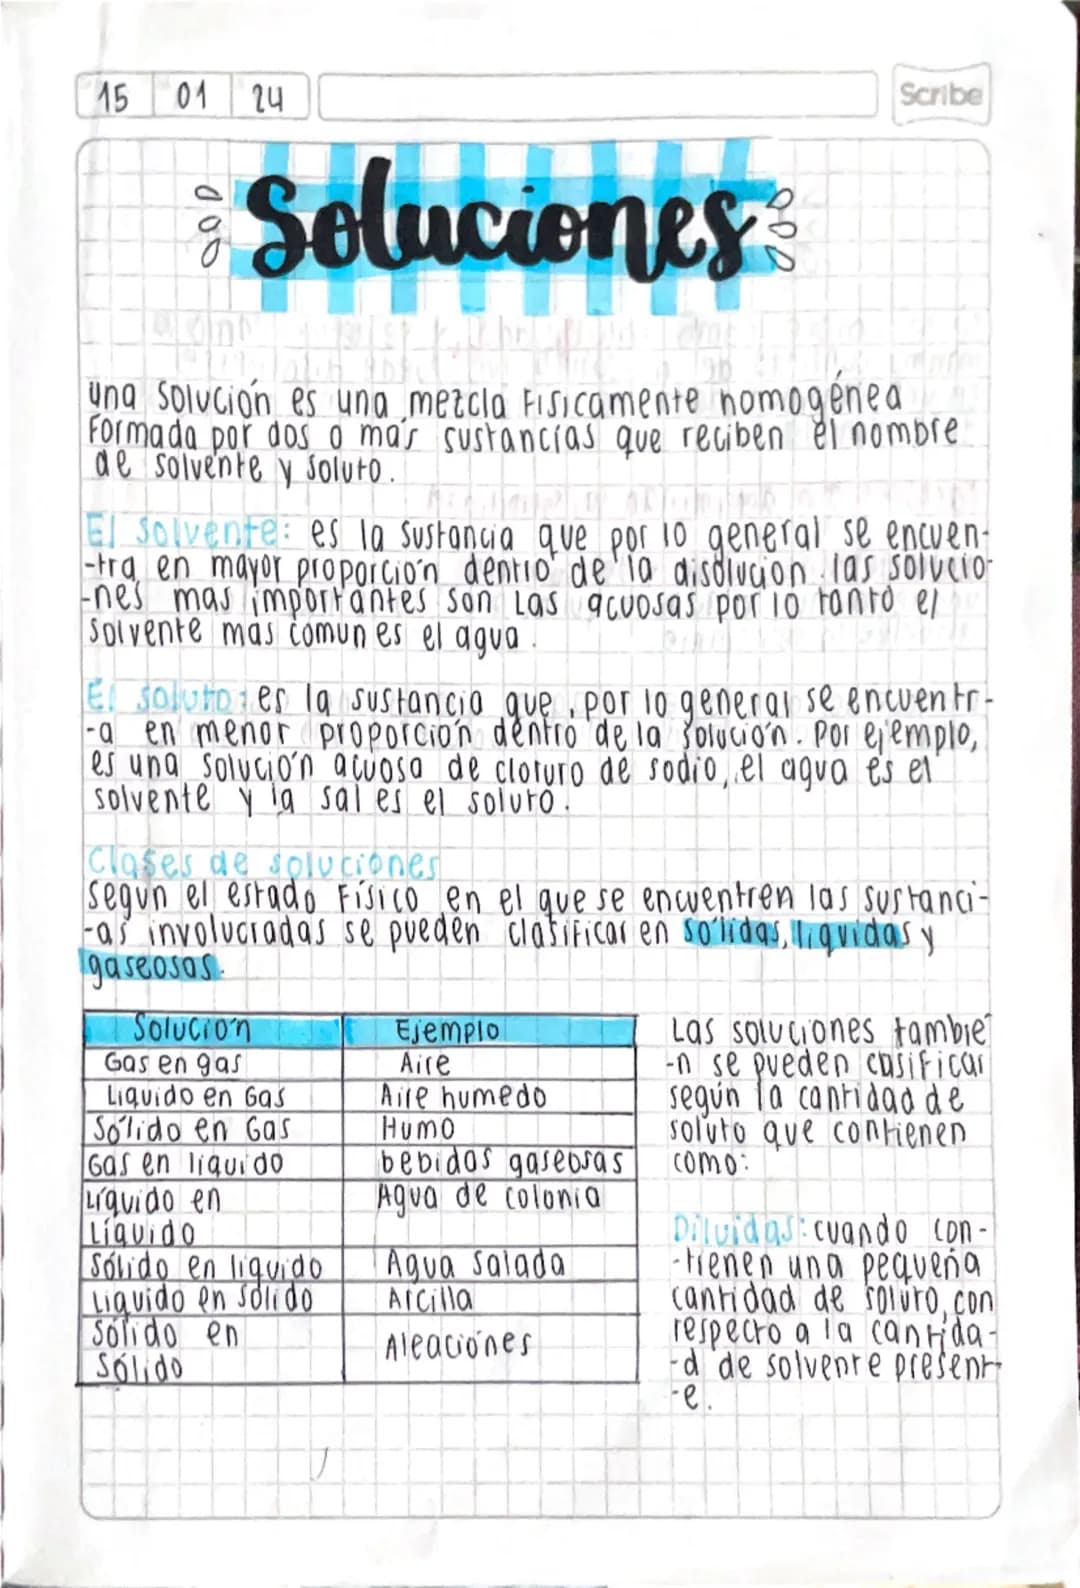 15 01 24
Scribe
Soluciones
una solución es una mezcla Fisicamente homogénea
Formada por dos o más sustancias que reciben el nombre
de solvente y soluto.
El solvente: es la sustancia que por lo general se encuen-
-tra en mayor proporción dentro de la disolucion. las solucio-
-nes mas importantes son Las acuosas por lo tanto el
solvente mas comun es el agua.
El soluto: es la sustancia que, por lo general se encuentr-
-a en menor proporción dentro de la solución. Por ejemplo,
es una solución acuosa de cloruro de sodio, el agua es el
solvente y la sal es el soluto.
Clases de soluciones
segun el estado Físico en el que se encuentren las sustanci-
-as involucradas se pueden clasificar en sólidas, liquidas y
gaseosas.
Solución Ejemplo
Gas en gas Aire
Liquido en Gas Aire humedo
Sólido en Gas Humo
Gas en liquido bebidas gaseosas
Líquido en Agua de colonia
Líquido
Sólido en liquido Agua salada
Liquido en sólido Arcilla
Sólido en Aleaciónes
Sólido
Las soluciones tambié
-n se pueden casificar
según la cantidad de
soluto que contienen
como:
Diluidas: cuando con-
-tienen una pequeña
cantidad de soluto, con
respecto a la cantida-
-d de solvente present-
-e.